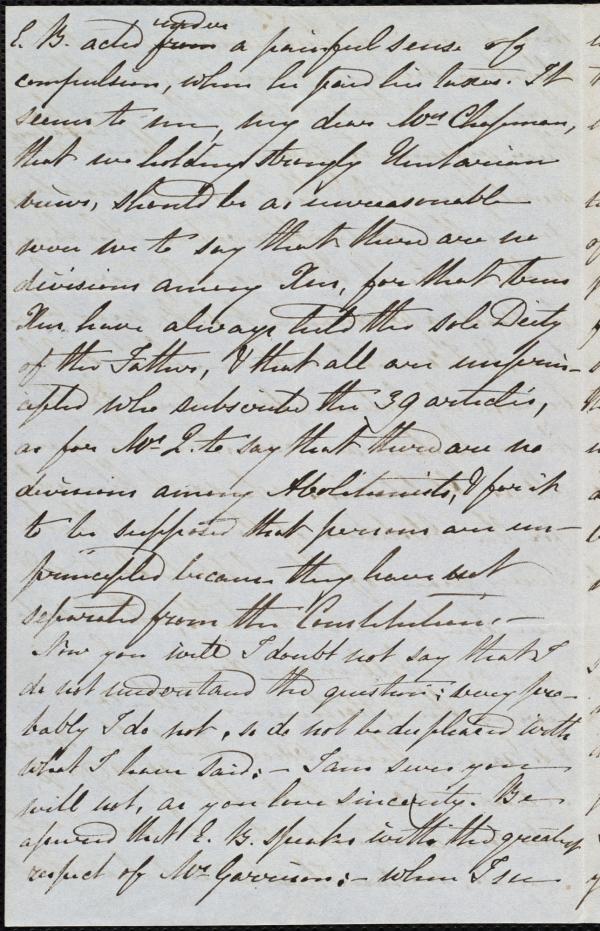 under
E. B. acted from a painful sense of
compulsion, when he paid his taxes. It
seems to me, my dear Mrs Chapman,
that we holding strongly Unitarian
views, should be as unreasonable
were we to say that there are no
divisions among Xns, for that true
Xns have always held the sole Deity
of the Father, & that all are unprin-
cipled who subscribe the 39 articles,
as for Mr Q. to say that there are no
divisions among Abolitionists, & for it
to be supposed that persons are un-
principled because they have not
separated from the Constitution.-
Now you will I doubt not say that I
do not understand the question; very pro-
bably I do not, so do not be displeased with
what I have said; - I am sure you
will not, as you love sincerity. Be
assured that E. B. speaks with the greatest
respect of Mr Garrison; - when I see